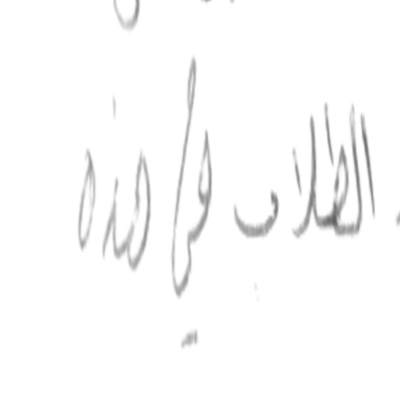 الطلاب في هذه